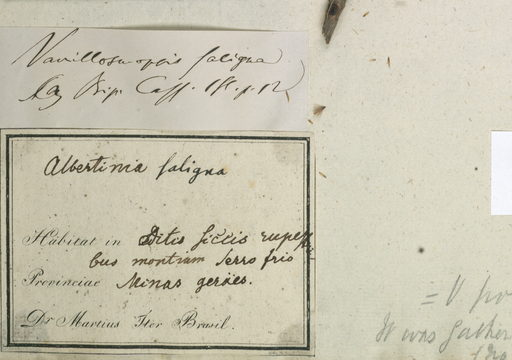 Vanillosmopsis saligna
Sch. Bip.
Albertinia saligna
Habitat in editis siccis rupestri
bus montium Serro frio
Provinciae Minas geraes.
Dr Martius Iter Brasil.
= V
It was gather